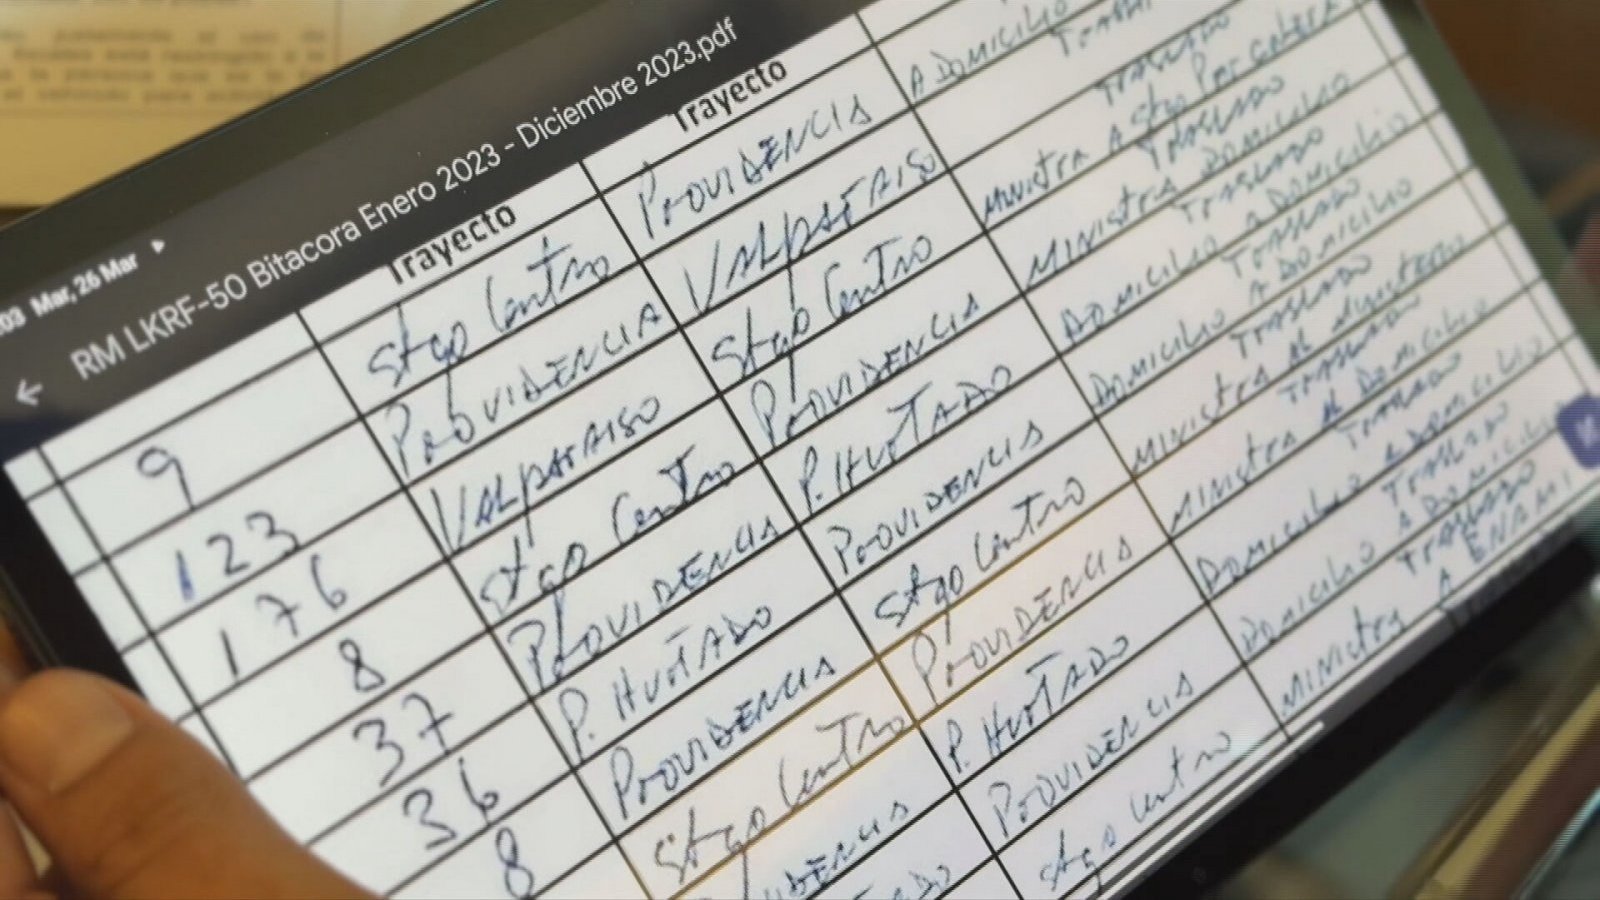 03 Mar, 26 Mar
RM LKRF-50 Bitacora Enero 2023 - Diciembre 2023.pdf
Trayecto Trayecto
9 Stgo Centro PROVIDENCIA A DOMICILIO
123 PROVIDENCIA VALPARAISO
TRASLADO
176 VALPARAISO Stgo Centro MINISTRA A Stgo Por
TRASLADO
8 Stgo Centro PROVIDENCIA MINISTRA DOMICILIO
TRASLADO
37 PROVIDENCIA P. HURTADO DOMICILIO A DOMICILIO
TRASLADO
36 P. HURTADO PROVIDENCIA DOMICILIO A DOMICILIO
TRASLADO
8 PROVIDENCIA Stgo Centro MINISTRA AL
TRASLADO
Stgo Centro PROVIDENCIA MINISTRA AL DOMICILIO
TRASLADO
P. HURTADO DOMICILIO A DOMICILIO
TRASLADO
PROVIDENCIA DOMICILIO A DOMICILIO
TRASLADO
Stgo Centro MINISTRA A ENAMI